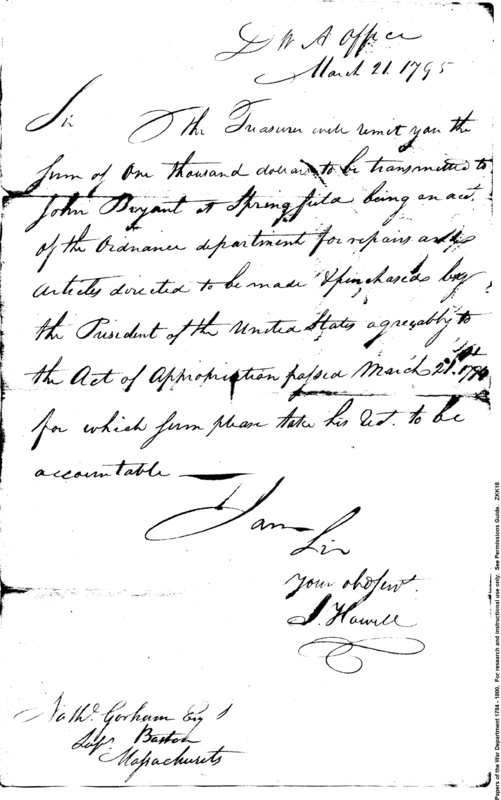 D W A Office
March 21. 1795
Sir The Treasurer will remit you the
sum of One thousand dollars to be transmitted to
John Bryant at Springfield being on act.
of the Ordnance department for repairs and
articles directed to be made & purchased by
the President of the United States agreeably to
the Act of Appropriation passed March 21st. 1794
for which sum please take his Rct. to be
accountable
I am
Sir
Your obd Servt.
J. Howell
Nathl. Gorham Esq
Supr. Boston
Massachusets
Papers of the War Department 1784 - 1800. For research and instructional use only. See Permissions Guide. ZKK16